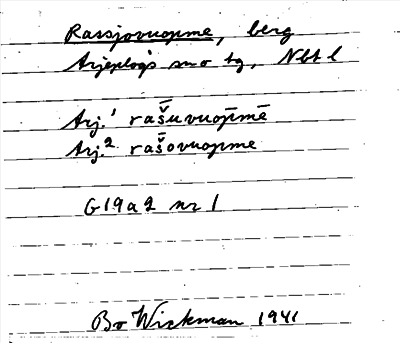 Rassjovuopme, berg
Arjeplogs sn o tg, Nbt l
Arj.¹ rāšuvuo͕pmē
Arj.² rāšovuopme
G19a2 nr 1
Bo Wickman 1941